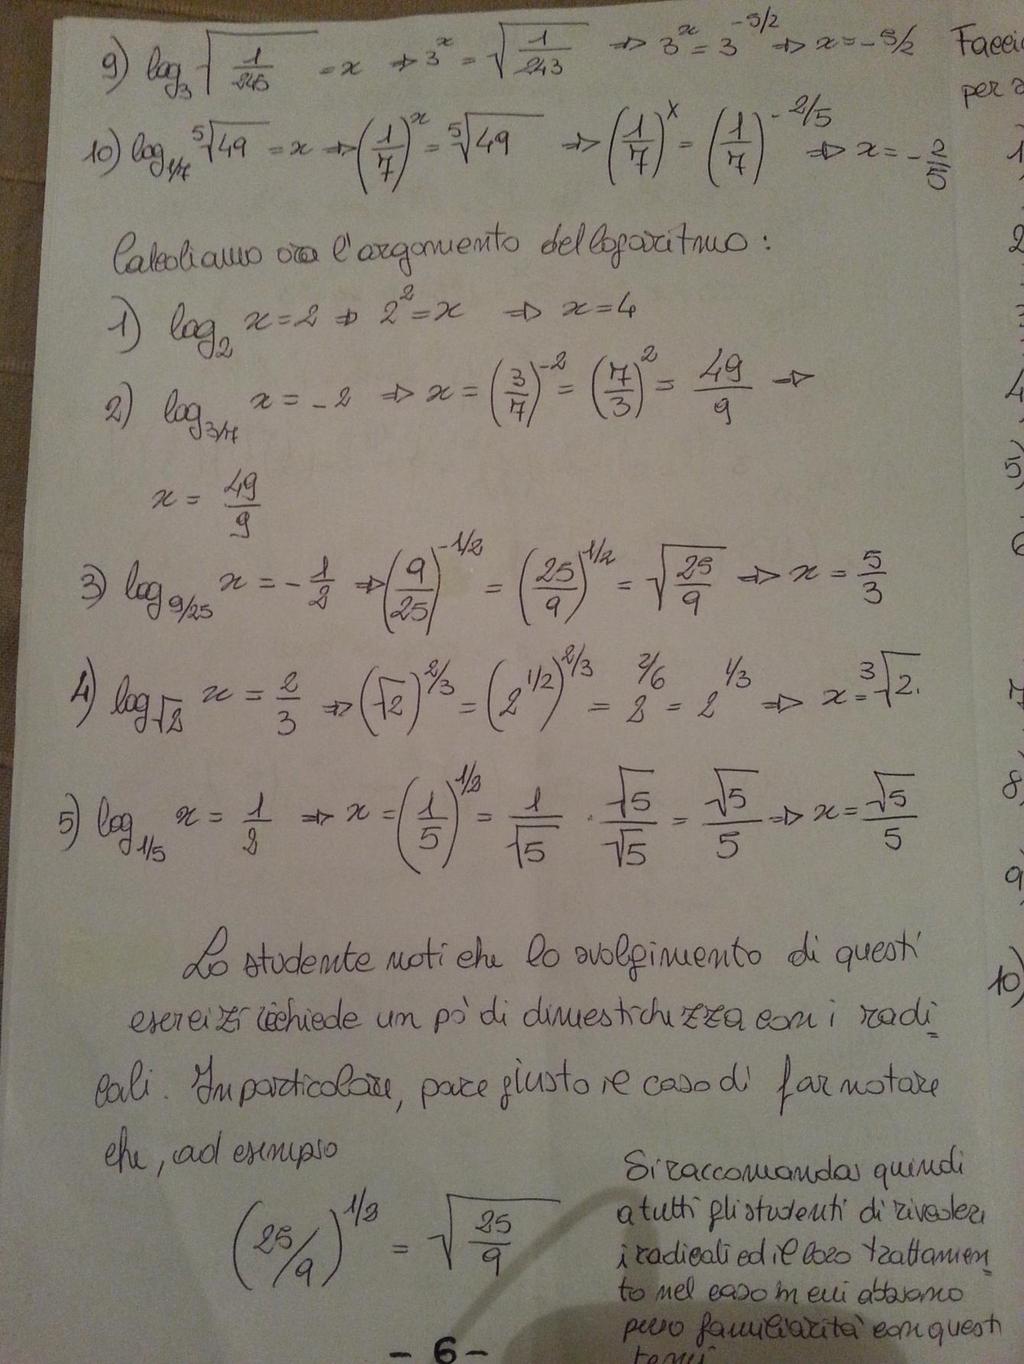 9) log₃ √(1/243) = x ⇒ 3^x = √(1/243) ⇒ 3^x = 3^(-5/2) ⇒ x = -5/2
10) log_(1/7) ⁵√49 = x ⇒ (1/7)^x = ⁵√49 ⇒ (1/7)^x = (1/7)^(-2/5) ⇒ x = -2/5
Calcoliamo ora l'argomento del logaritmo:
1) log₂ x = 2 ⇒ 2² = x ⇒ x = 4
2) log_(3/7) x = -2 ⇒ x = (3/7)^(-2) = (7/3)² = 49/9 ⇒
x = 49/9
3) log_(9/25) x = -1/2 ⇒ (9/25)^(-1/2) = (25/9)^(1/2) = √(25/9) ⇒ x = 5/3
4) log_(√2) x = 2/3 ⇒ (√2)^(2/3) = (2^(1/2))^(2/3) = 2^(2/6) = 2^(1/3) ⇒ x = ³√2.
5) log_(1/5) x = 1/2 ⇒ x = (1/5)^(1/2) = 1/√5 · √5/√5 = √5/5 ⇒ x = √5/5
Lo studente noti che lo svolgimento di questi
esercizi richiede un pò di dimestichezza con i radi=
cali. In particolare, pare giusto il caso di far notare
che, ad esempio
(25/9)^(1/2) = √(25/9)
Si raccomanda quindi
a tutti gli studenti di rivedere
i radicali ed il loro trattamen=
to nel caso in cui abbiano
poco familiarità con questi
temi
- 6 -
Faccia
per
1
2
3
4
5)
6
7
8)
9
10)